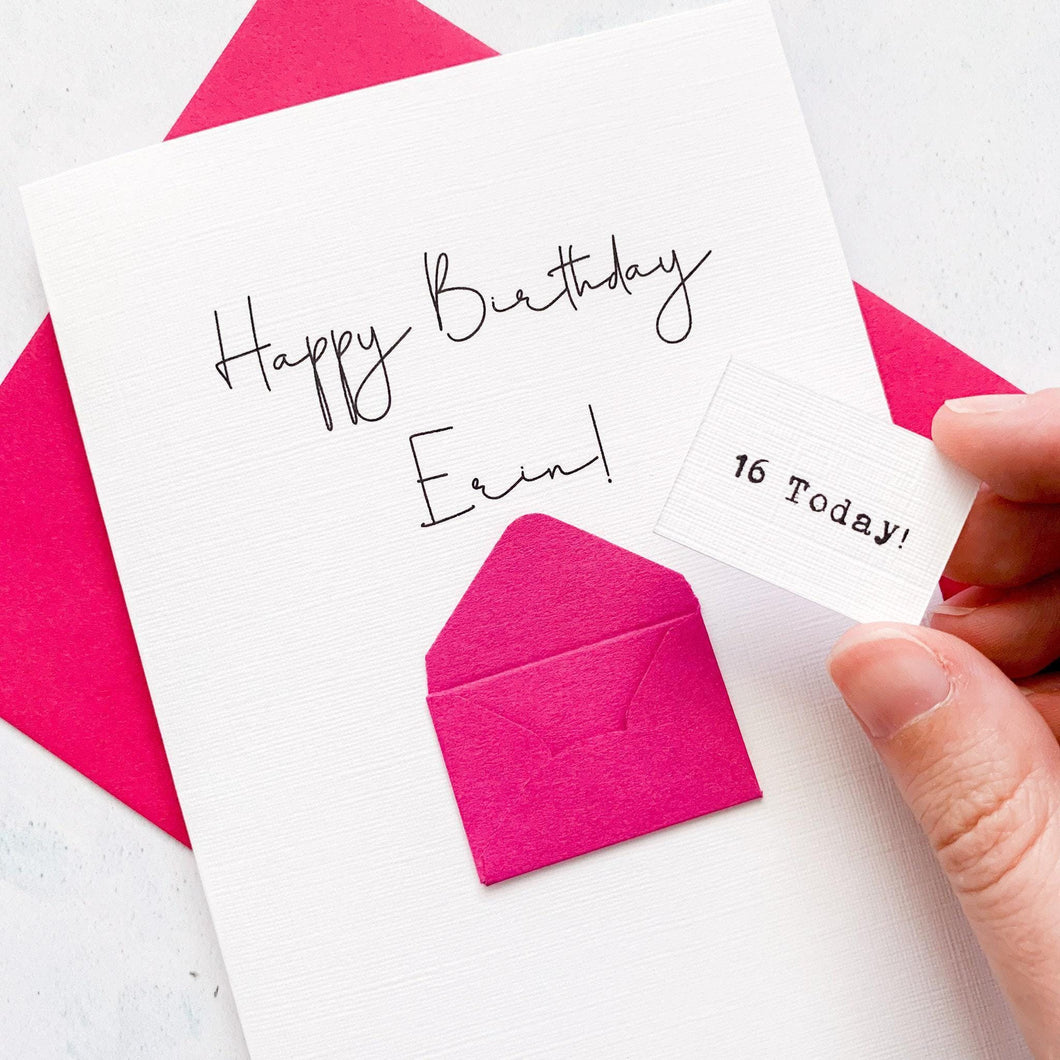 Happy Birthday
Erin!
16 Today!